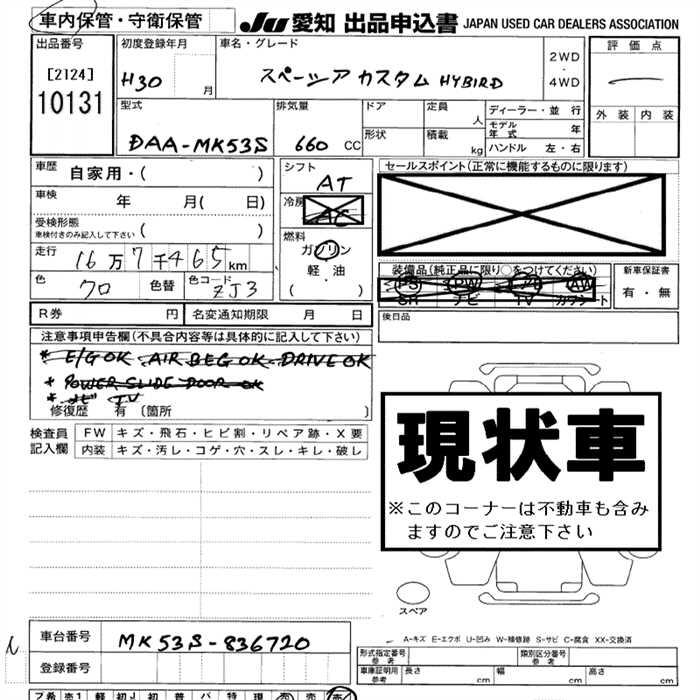 車内保管・守衛保管
JU 愛知 出品申込書 JAPAN USED CAR DEALERS ASSOCIATION
出品番号
[2124]
10131
初度登録年月
H30 月
車名・グレード
スペーシア カスタム HYBIRD
2WD
・
4WD
評価点
外装 内装
型式
DAA-MK53S
排気量
660 CC
ドア
形状
定員 人
積載 kg
ディーラー・並行
モデル年式 年
ハンドル 左・右
車歴 自家用・( )
車検 年 月( 日)
受検形態
車検付きのみ記入して下さい ( )
走行 16万7千465km
色 クロ 色替 色コード ZJ3
シフト
AT
冷房
AC
燃料
ガソリン
軽・油
( ・ )
セールスポイント(正常に機能するものに限ります)
装備品(純正品に限り○をつけてください)
PS PW AW
SR ナビ TV カワシート
新車保証書
有・無
R券 円 名変通知期限 月 日
後日品
注意事項申告欄(不具合内容等は具体的に記入して下さい)
* E/G OK AIR BEG OK DRIVE OK
* POWER SLIDE DOOR OK
* ナビ TV
修復歴 有〔箇所 〕
検査員記入欄
FW キズ・飛石・ヒビ割・リペア跡・X要
内装 キズ・汚レ・コゲ・穴・スレ・キレ・破レ
現状車
※このコーナーは不動車も含み
ますのでご注意下さい
スペア
A-キズ E-エクボ U-凹み W-補修跡 S-サビ C-腐食 XX-交換済
車台番号 MK53S-836720
登録番号
形式指定番号
参考
類別区分番号
参考
車庫証明用
参考
長さ cm 幅 cm 高さ cm